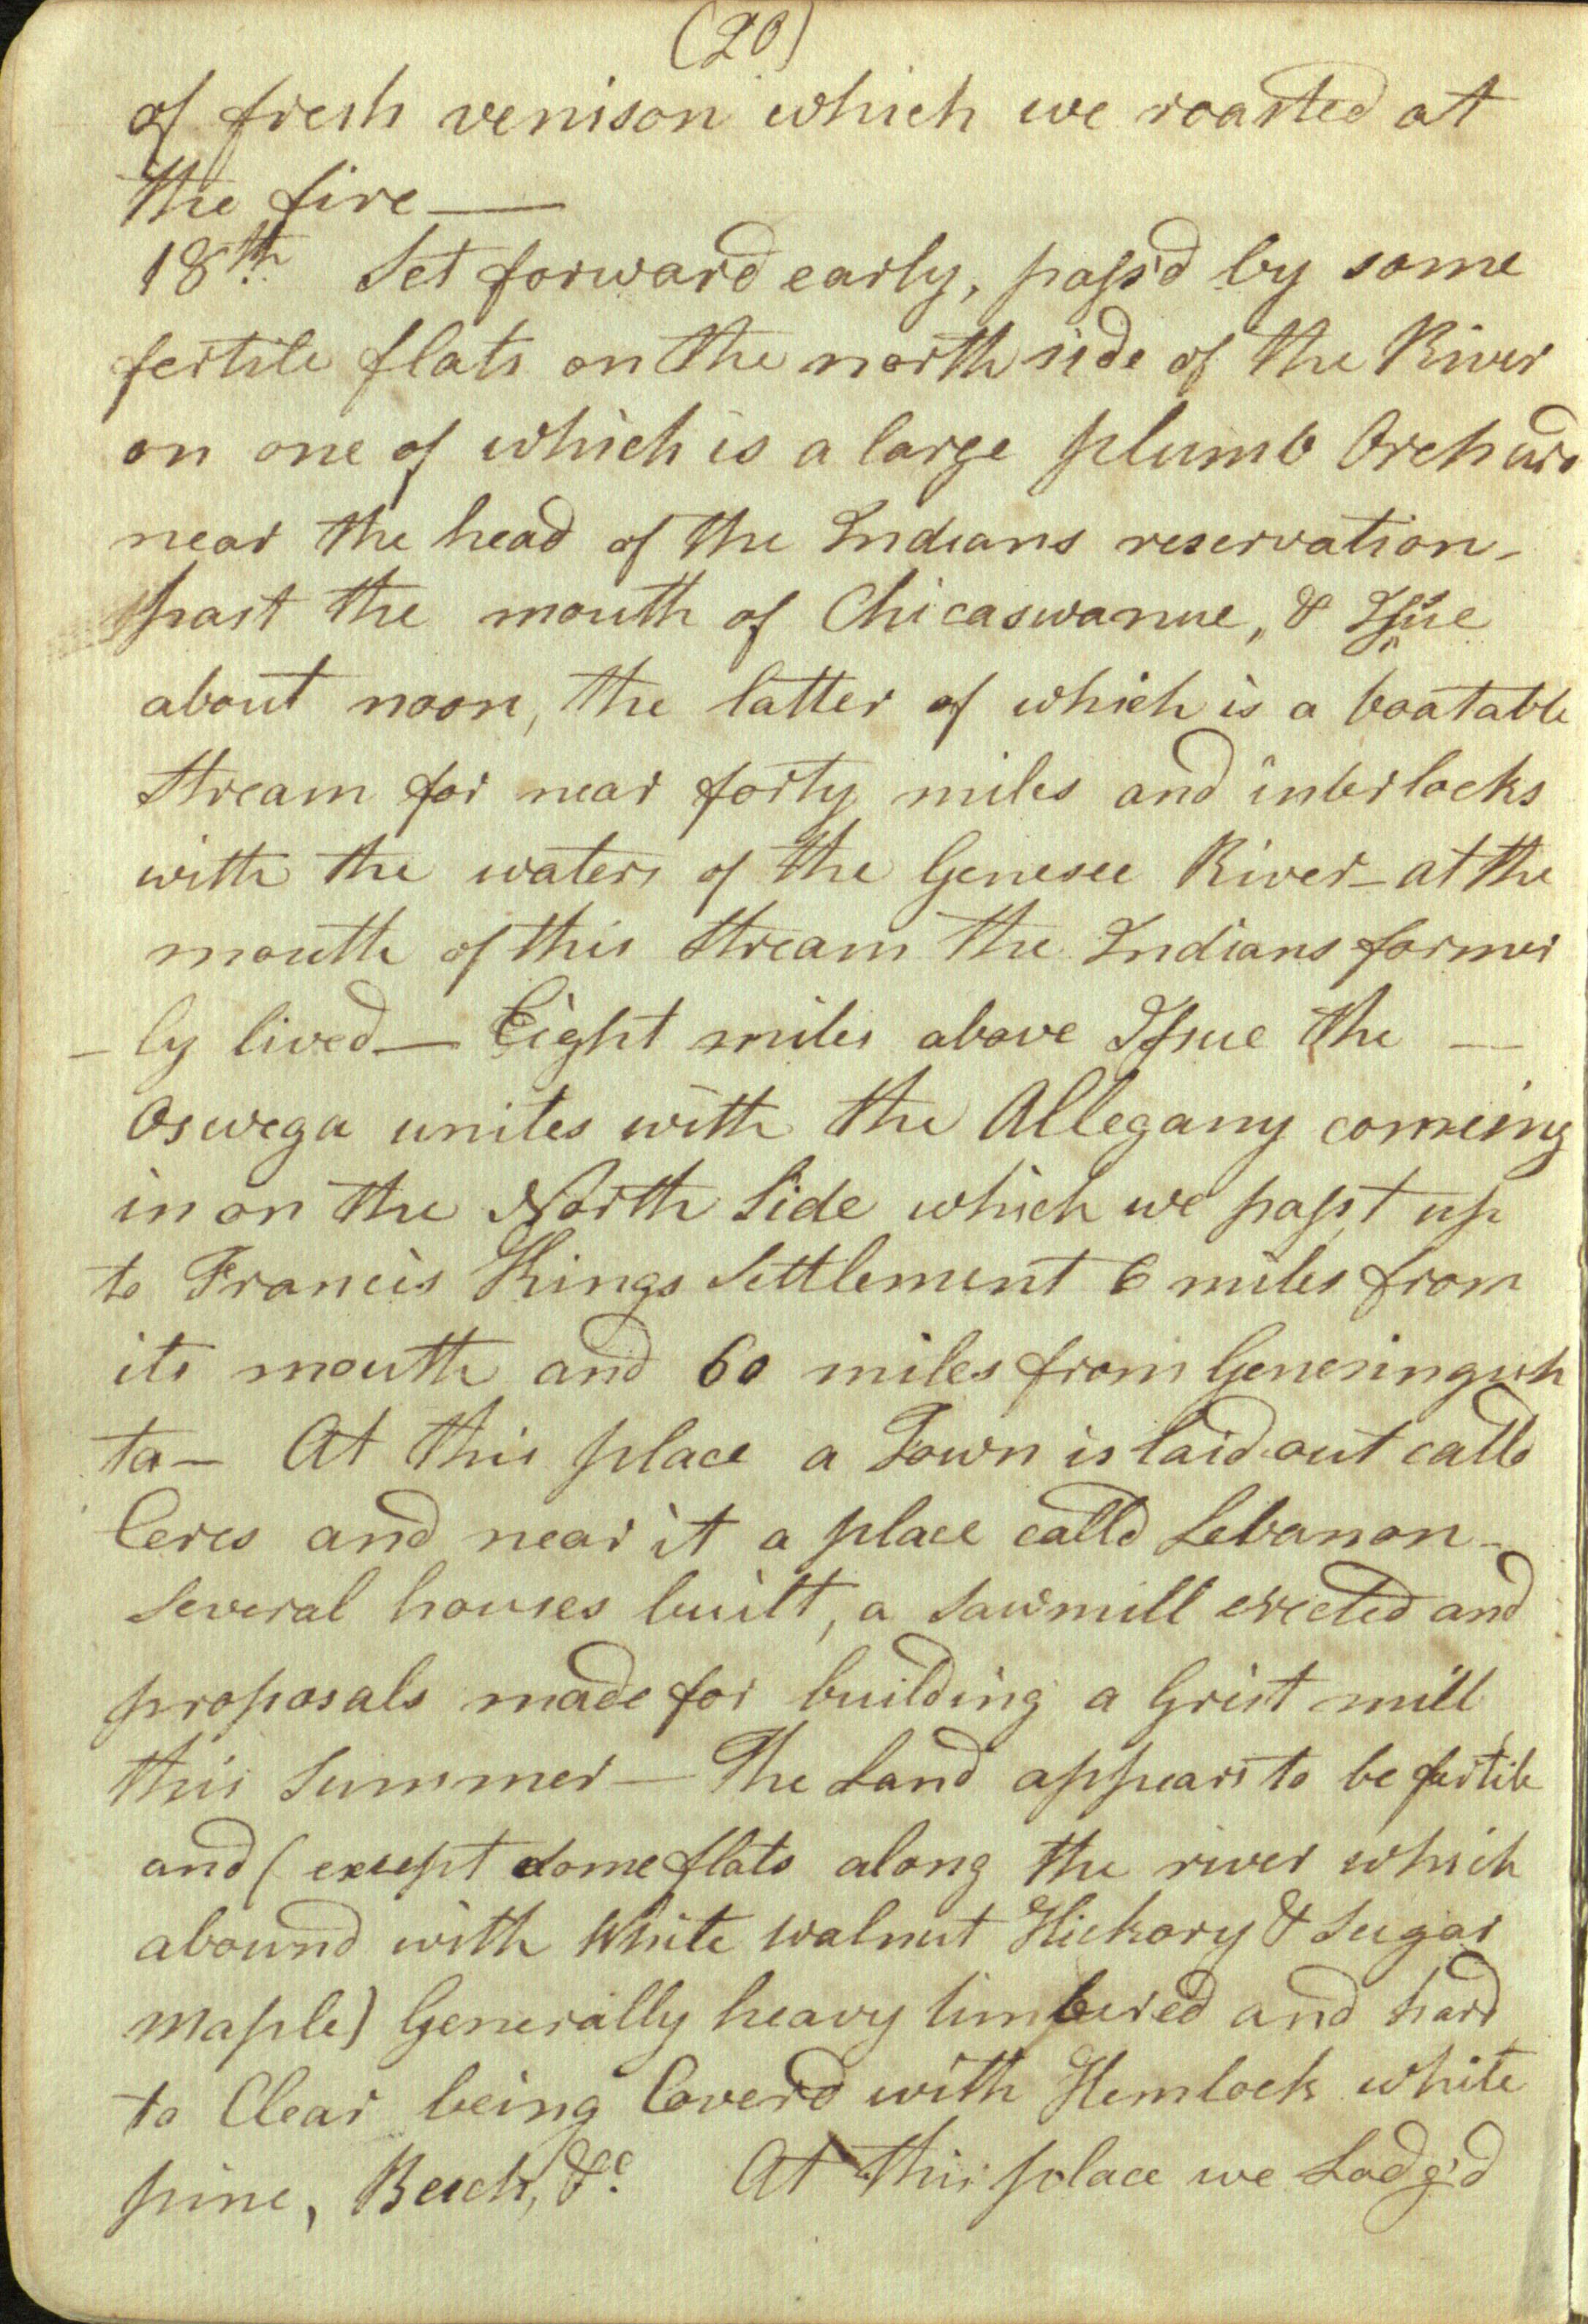 (20)
of fresh venison which we roasted at
the fire —
18th Set forward early, pass'd by some
fertile flats on the north side of the River
on one of which is a large plumb Orchard
near the head of the Indians reservation -
past the mouth of Chicaswanue, & Issue
about noon, the latter of which is a boatable
stream for near forty miles and interlocks
with the waters of the Genesee River - at the
mouth of this stream the Indians former
- ly lived — Eight miles above Issue the —
Oswega unites with the Allegany comeing
in on the North Side which we passt up
to Francis Kings Settlement 6 miles from
its mouth and 60 miles from Genesinguh
ta - At this place a Town is laid out calld
Ceres and near it a place calld Lebanon -
several houses built, a sawmill erected and
proposals made for building a Grist mill
this Summer — The Land appears to be fertile
and (except some flats along the river which
abound with White Walnut Hickory & Sugar
Maple) Generally heavy timbered and hard
to Clear being Coverd with Hemlock white
pine, Beech, &c. At this place we Lodg'd